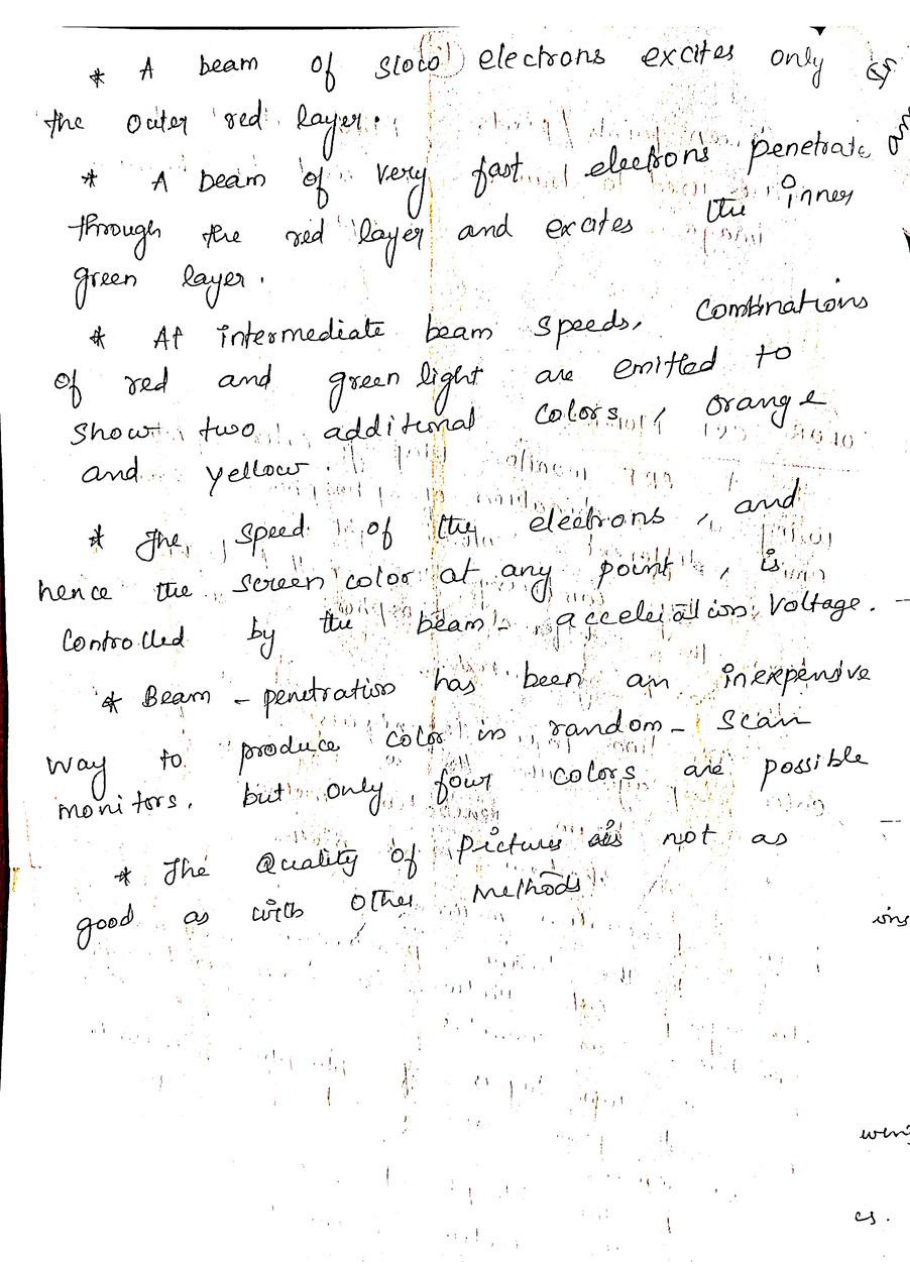 * A beam of slow electrons excites only
the outer red layer.
* A beam of very fast electrons penetrate
through the red layer and excites the inner
green layer.
* At intermediate beam speeds, combinations
of red and green light are emitted to
show two additional colors, orange
and yellow.
* The speed of the electrons, and
hence the screen color at any point, is
controlled by the beam - acceleration voltage.
* Beam - penetration has been an inexpensive
way to produce color in random - scan
monitors, but only four colors are possible
* The Quality of picture is not as
good as with other methods